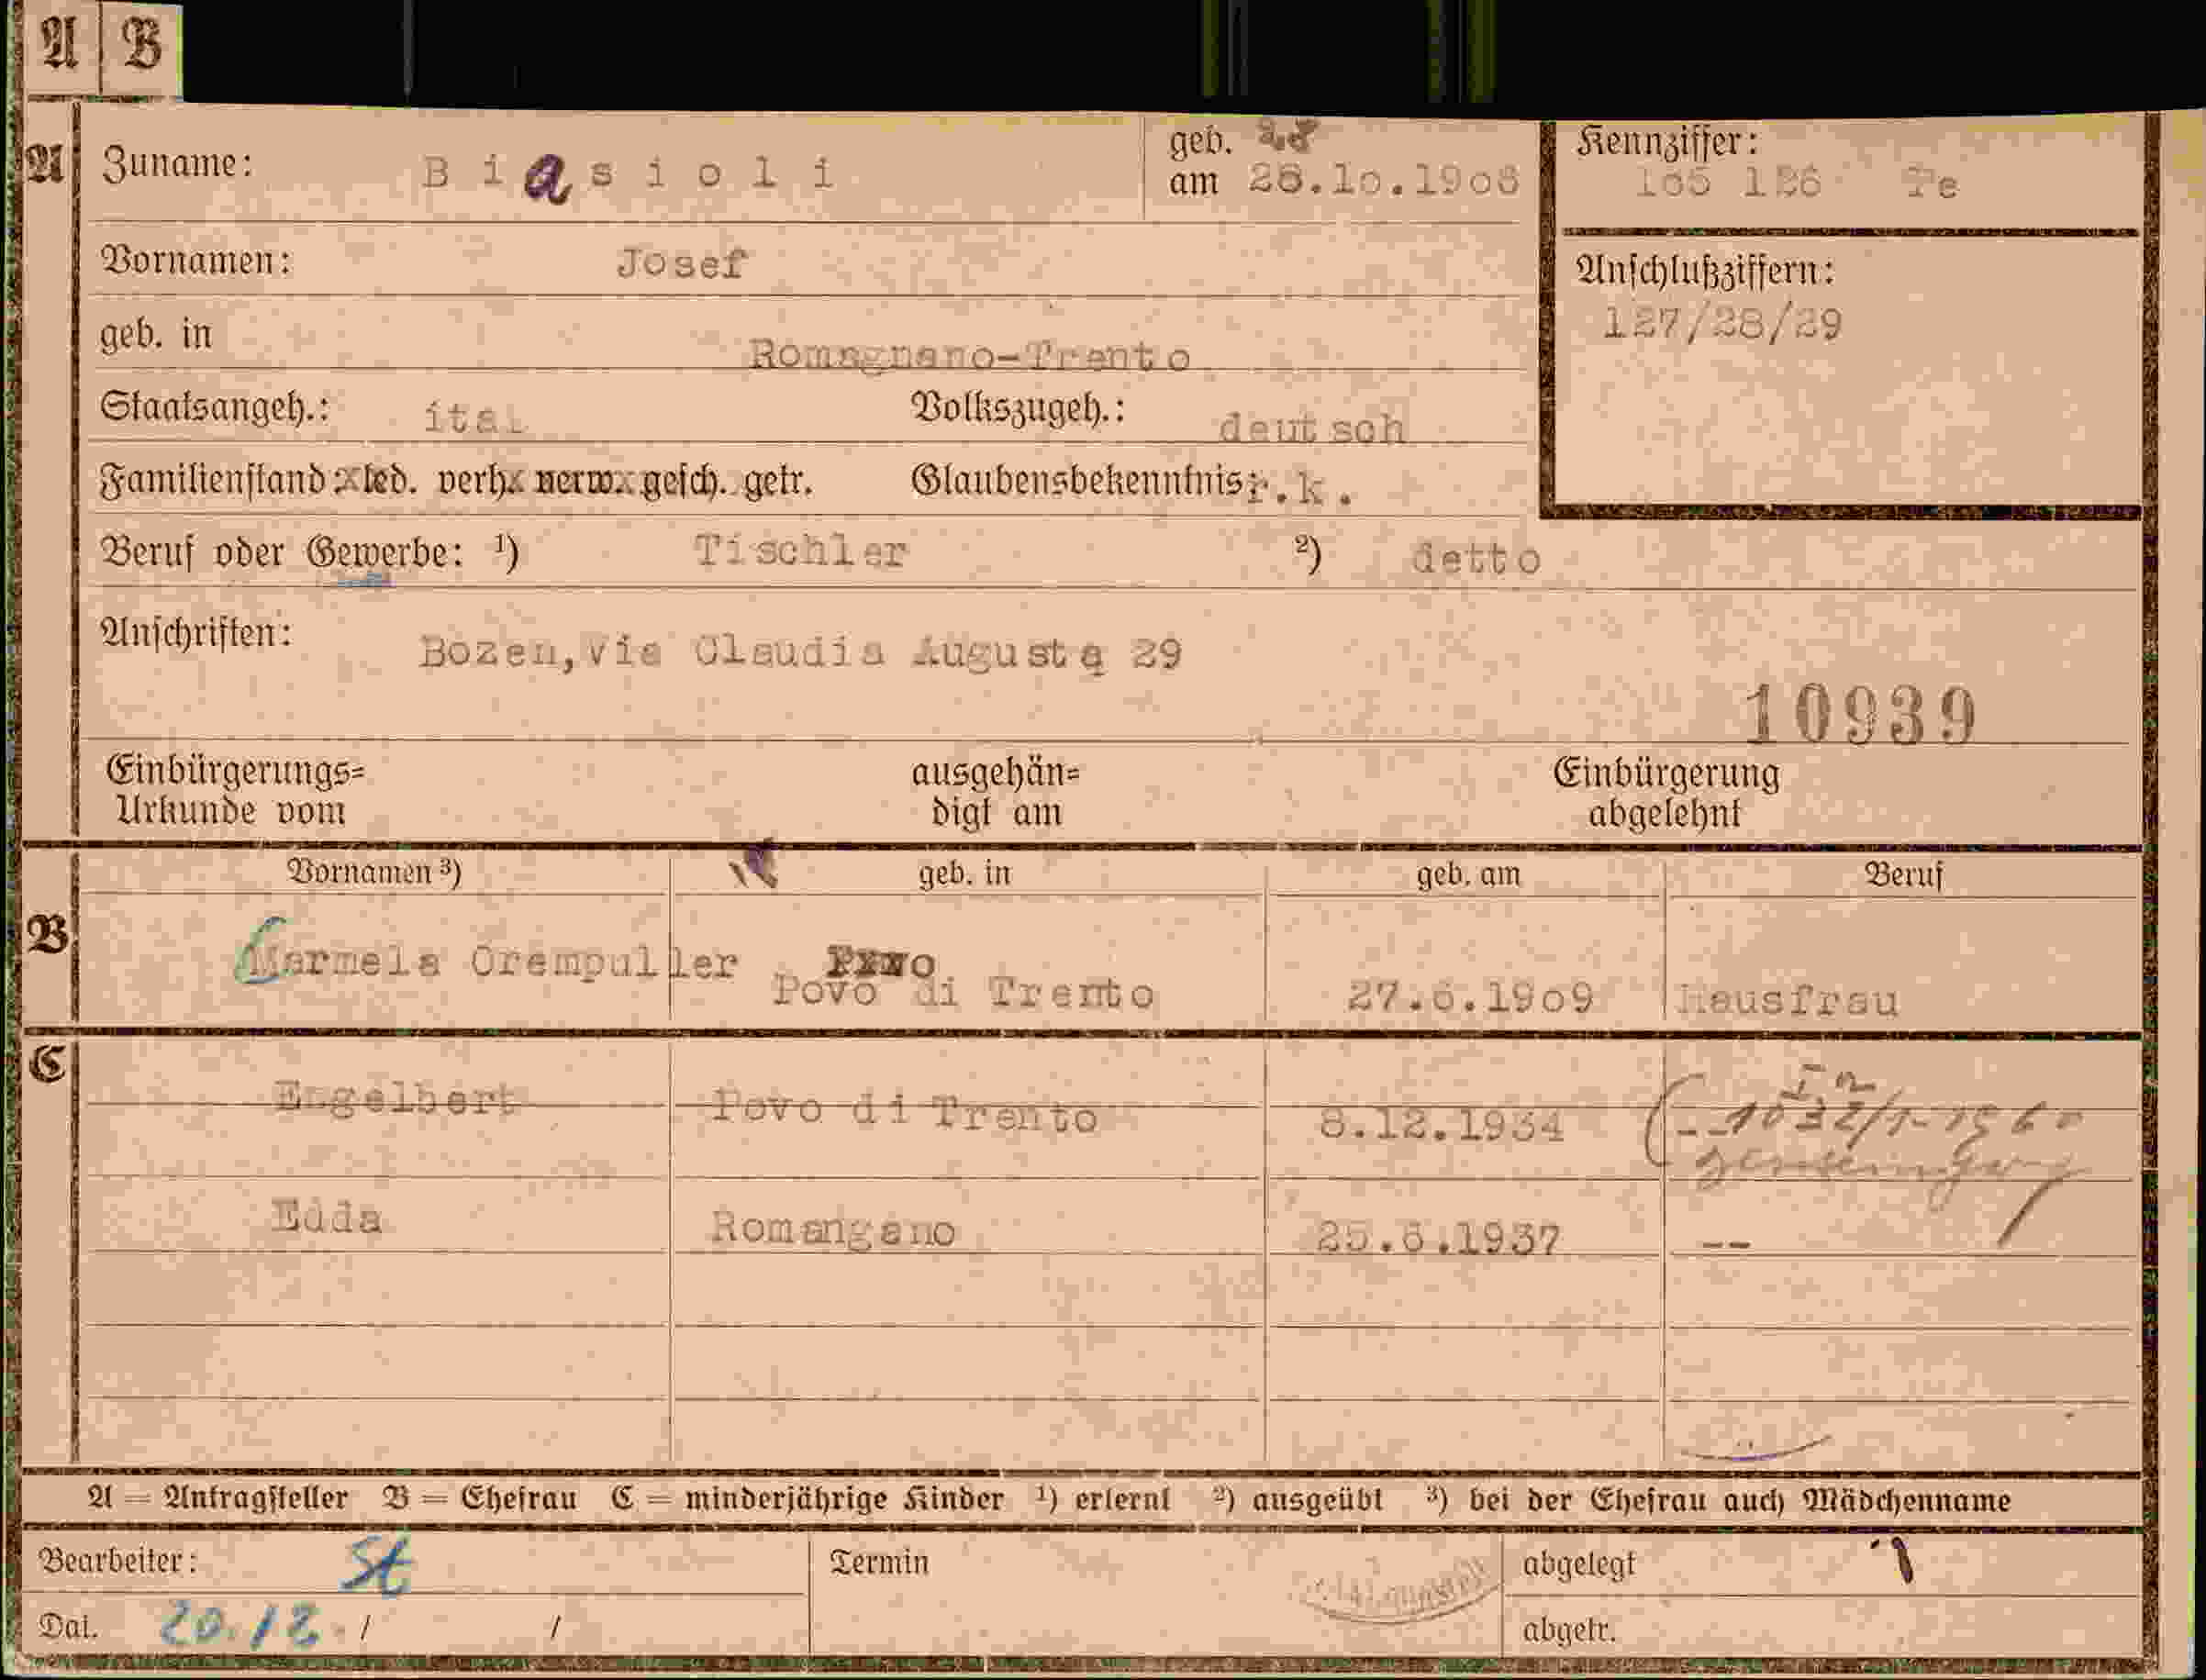 A B
A Zuname: Biasioli geb. am 28.10.1908 Kennziffer: 165 126 Te
Vornamen: Josef Anschlußziffern:
127/28/29
geb. in Romagnano-Trento
Staatsangeh.: ital Volkszugeh.: deutsch
Familienstand: led. verh. verw. gesch. getr. Glaubensbekenntnis: r.k.
Beruf oder Gewerbe: ¹) Tischler ²) detto
Anschriften: Bozen, via Claudia Augusta 29
10939
Einbürgerungs= ausgehän= Einbürgerung
Urkunde vom digt am abgelehnt
Vornamen ³) geb. in geb. am Beruf
B Carmela Crempuller Povo di Trento 27.6.1909 Hausfrau
C Engelbert Povo di Trento 8.12.1934
Edda Romangano 25.6.1937 --
A = Antragsteller B = Ehefrau C = minderjährige Kinder ¹) erlernt ²) ausgeübt ³) bei der Ehefrau auch Mädchenname
Bearbeiter: St Termin abgelegt
Dat. 20.12. / / abgetr.